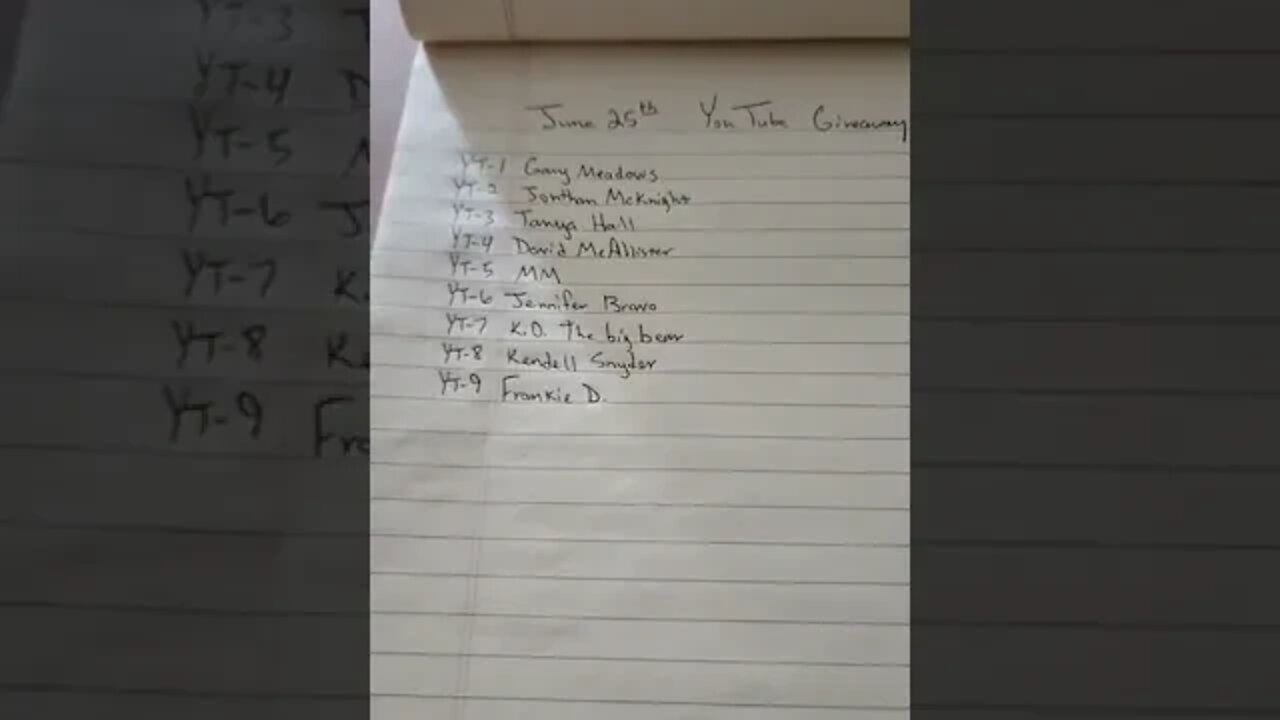 June 25th YouTube Giveaway
YT-1 Gary Meadows
YT-2 Jonthan McKnight
YT-3 Tanya Hall
YT-4 David McAllister
YT-5 MM
YT-6 Jennifer Bravo
YT-7 K.O. The big bear
YT-8 Kendell Snyder
YT-9 Frankie D.